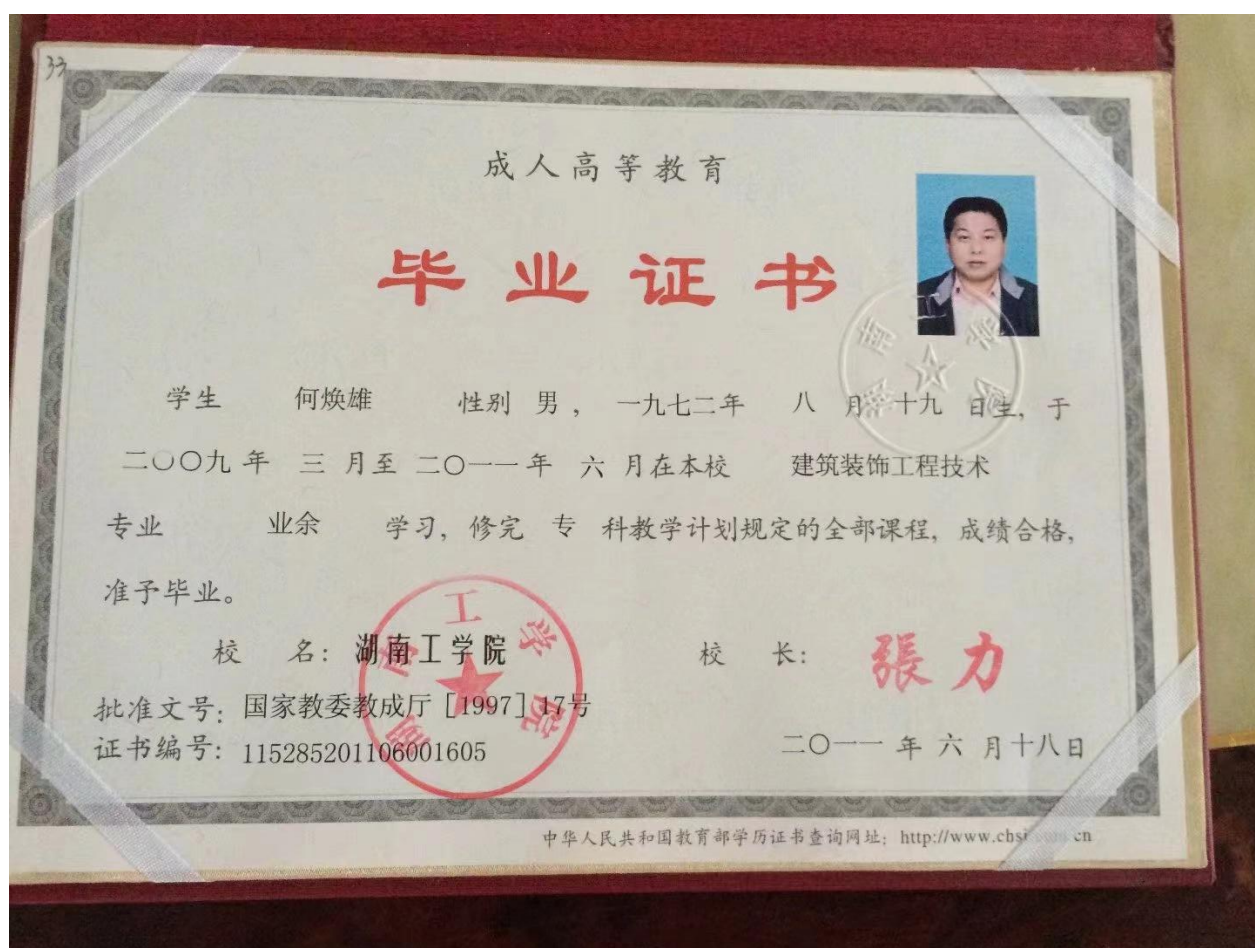 33
成人高等教育
毕业证书
学生 何焕雄 性别 男， 一九七二年 八 月 十九 日生，于
二〇〇九 年 三 月至 二〇一一 年 六 月在本校 建筑装饰工程技术
专业 业余 学习，修完 专 科教学计划规定的全部课程，成绩合格，
准予毕业。
校 名：湖南工学院
校 长：張力
批准文号：国家教委教成厅［1997］17号
证书编号：115285201106001605
二〇一一 年 六 月十八日
中华人民共和国教育部学历证书查询网址：http://www.chsi.com.cn
湖南工学院
湖南工学院